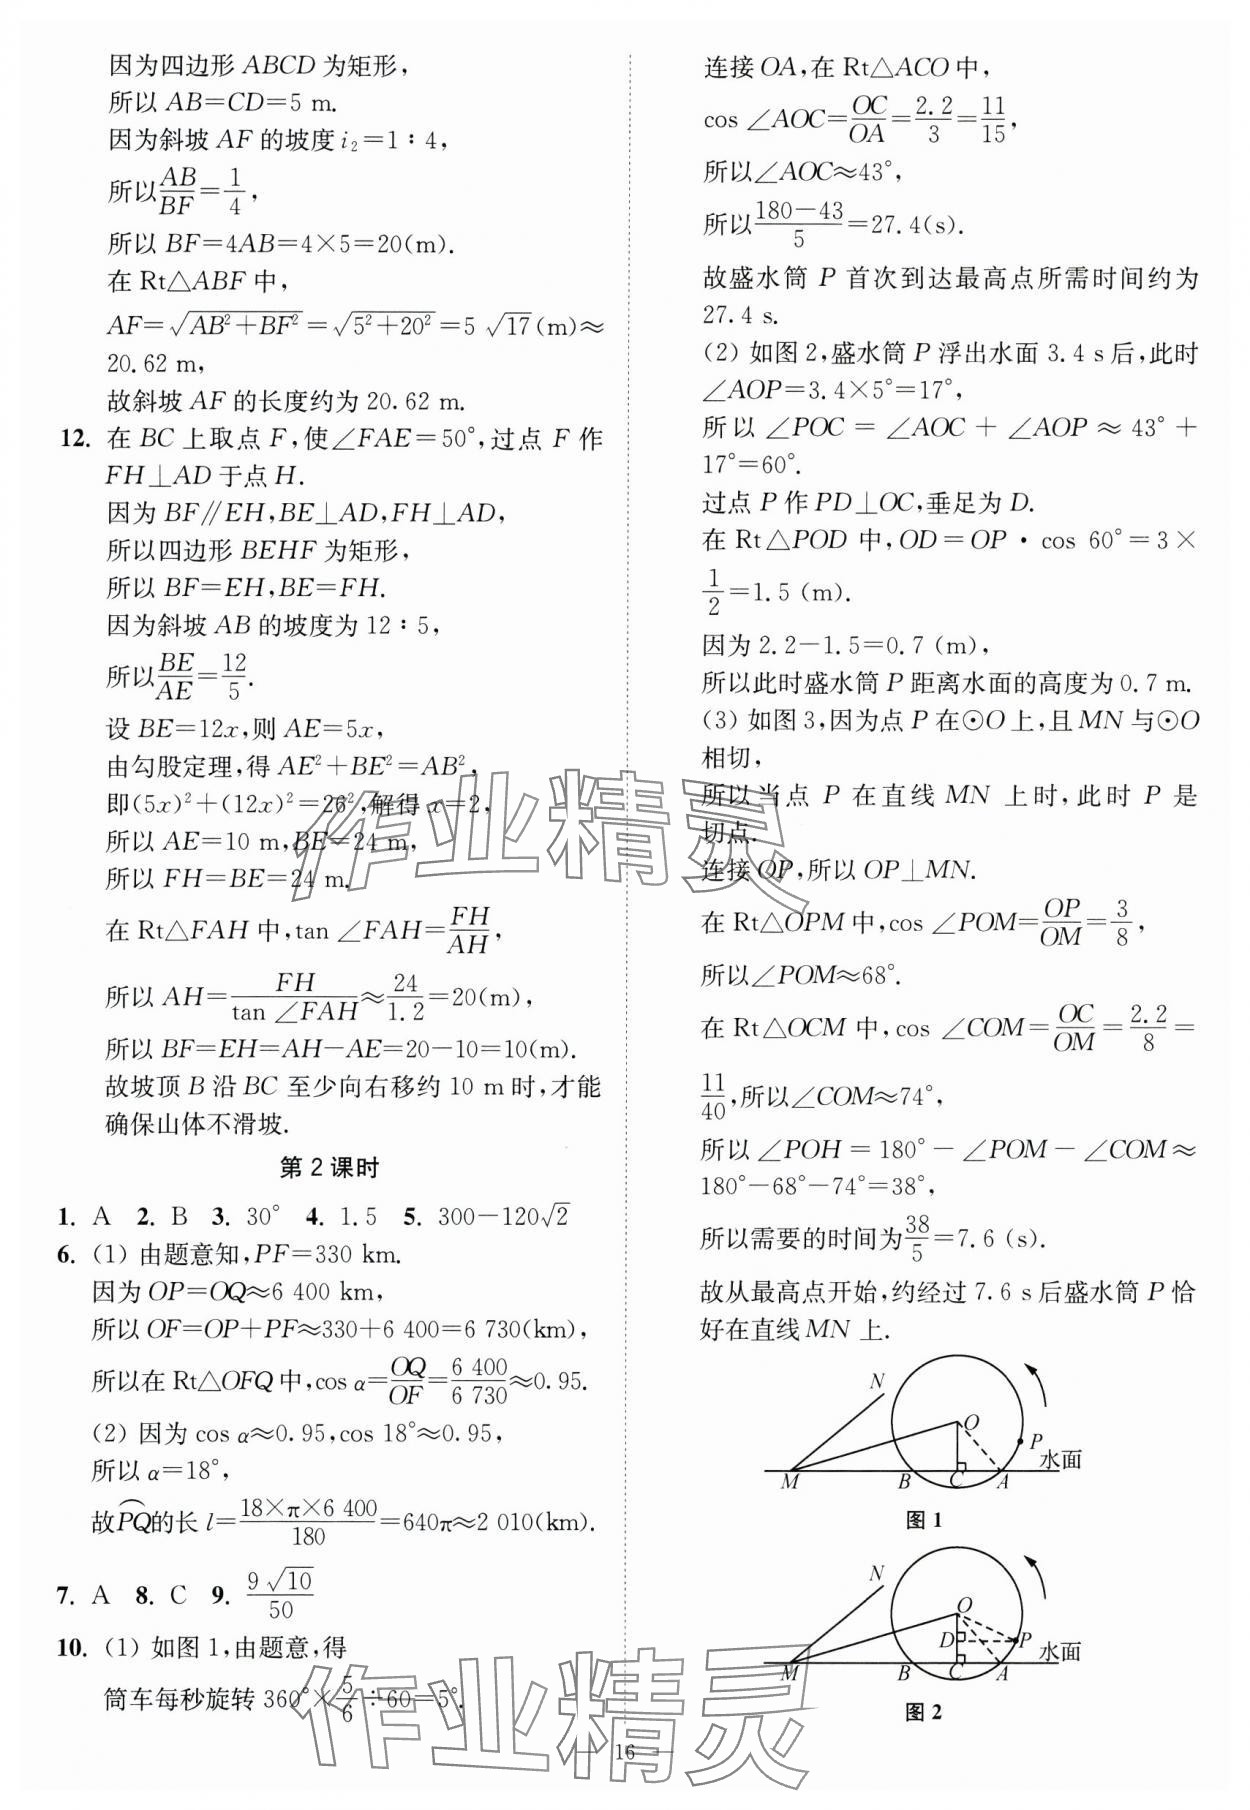 因为四边形 ABCD 为矩形，
所以 AB=CD=5 m.
因为斜坡 AF 的坡度 i₂=1∶4，
所以 AB/BF=1/4，
所以 BF=4AB=4×5=20(m).
在 Rt△ABF 中，
AF=√(AB²+BF²)=√(5²+20²)=5√17(m)≈
20.62 m，
故斜坡 AF 的长度约为 20.62 m.
12. 在 BC 上取点 F，使∠FAE=50°，过点 F 作
FH⊥AD 于点 H.
因为 BF∥EH，BE⊥AD，FH⊥AD，
所以四边形 BEHF 为矩形，
所以 BF=EH，BE=FH.
因为斜坡 AB 的坡度为 12∶5，
所以 BE/AE=12/5.
设 BE=12x，则 AE=5x，
由勾股定理，得 AE²+BE²=AB²，
即(5x)²+(12x)²=26²，解得 x=2，
所以 AE=10 m，BE=24 m，
所以 FH=BE=24 m.
在 Rt△FAH 中，tan ∠FAH=FH/AH，
所以 AH=FH/tan ∠FAH≈24/1.2=20(m)，
所以 BF=EH=AH－AE=20－10=10(m).
故坡顶 B 沿 BC 至少向右移约 10 m 时，才能
确保山体不滑坡.
第 2 课时
1. A 2. B 3. 30° 4. 1.5 5. 300－120√2
6. (1) 由题意知，PF=330 km.
因为 OP=OQ≈6 400 km，
所以 OF=OP+PF≈330+6 400=6 730(km)，
所以在 Rt△OFQ 中，cos α=OQ/OF=6 400/6 730≈0.95.
(2) 因为 cos α≈0.95，cos 18°≈0.95，
所以 α=18°，
故⌒PQ的长 l=18×π×6 400/180=640π≈2 010(km).
7. A 8. C 9. 9√10/50
10. (1) 如图 1，由题意，得
筒车每秒旋转 360°×5/6÷60=5°.
连接 OA，在 Rt△ACO 中，
cos ∠AOC=OC/OA=2.2/3=11/15，
所以∠AOC≈43°，
所以 180－43/5=27.4(s).
故盛水筒 P 首次到达最高点所需时间约为
27.4 s.
(2) 如图 2，盛水筒 P 浮出水面 3.4 s 后，此时
∠AOP=3.4×5°=17°，
所以 ∠POC = ∠AOC + ∠AOP ≈ 43° +
17°=60°.
过点 P 作 PD⊥OC，垂足为 D.
在 Rt△POD 中，OD=OP·cos 60°=3×
1/2=1.5 (m).
因为 2.2－1.5=0.7 (m)，
所以此时盛水筒 P 距离水面的高度为 0.7 m.
(3) 如图 3，因为点 P 在⊙O 上，且 MN 与⊙O
相切，
所以当点 P 在直线 MN 上时，此时 P 是
切点.
连接 OP，所以 OP⊥MN.
在 Rt△OPM 中，cos ∠POM=OP/OM=3/8，
所以∠POM≈68°.
在 Rt△OCM 中，cos ∠COM=OC/OM=2.2/8=
11/40，所以∠COM≈74°，
所以 ∠POH = 180° － ∠POM － ∠COM ≈
180°－68°－74°=38°，
所以需要的时间为 38/5=7.6 (s).
故从最高点开始，约经过 7.6 s 后盛水筒 P 恰
好在直线 MN 上.
N
O
P
水面
M B C A
图 1
N
O
D P
水面
M B C A
图 2
16
作业精灵
作业精灵